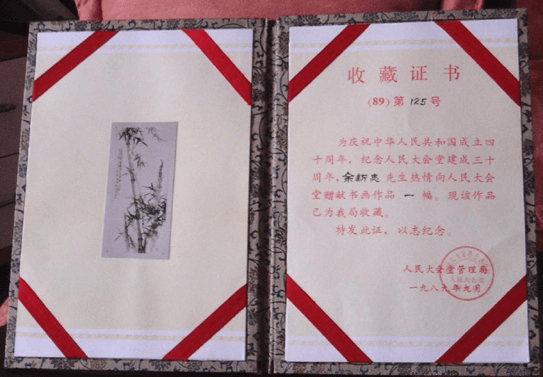 收藏证书
（89）第125号
为庆祝中华人民共和国成立四
十周年，纪念人民大会堂建成三十
周年，余新志先生热情向人民大会
堂赠献书画作品一幅。现该作品
已为我局收藏。
特发此证，以志纪念。
人民大会堂管理局
一九八九年九月